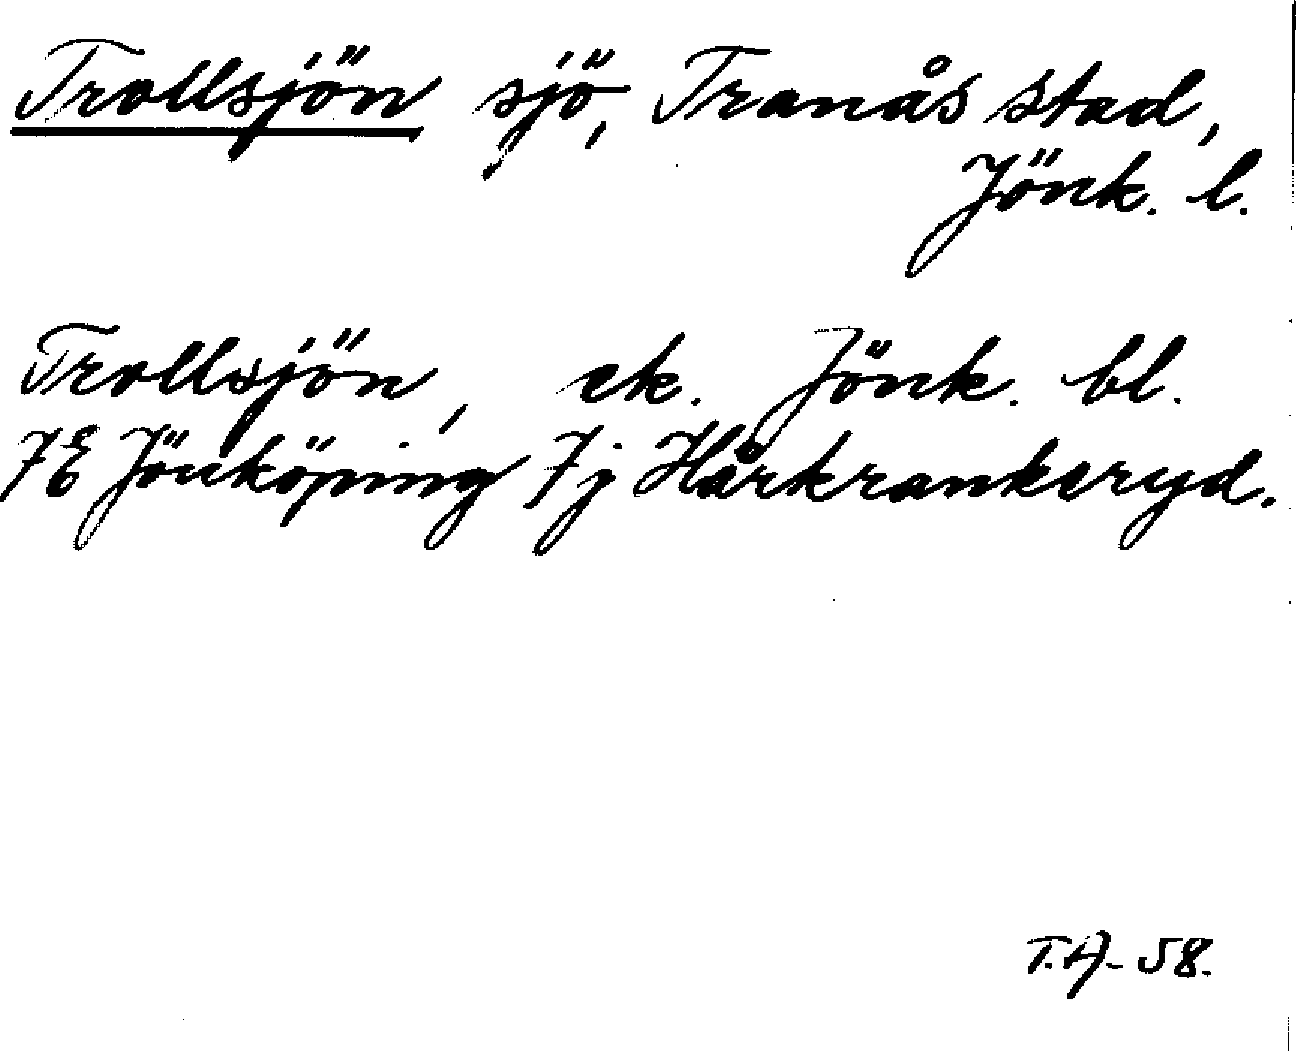 Trollsjön sjö, Tranås stad,
Jönk. l.
Trollsjön, ek. Jönk. bl.
7E Jönköping 7j Hårkrankeryd.
T.A- 58.